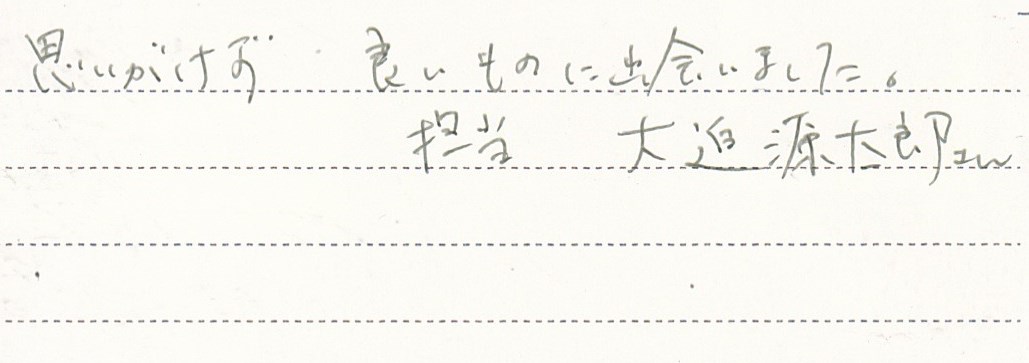 思いがけず 良いものに出会いました。
担当 大迫源太郎さん